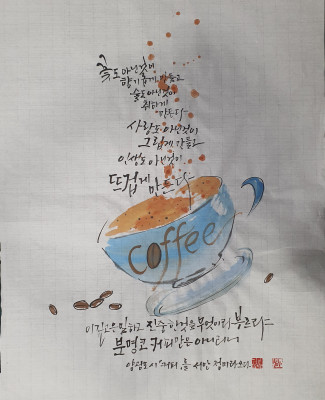 꽃도 아닌 것이
향기롭게 만들고
술도 아닌 것이
취하게
만든다
사랑도 아닌것이
그립게 만들고
인생도 아닌것이
뜨겁게 만든다
coffee
이 깊고 은밀하고 진중한 것을 무엇이라 부른다
분명코 커피만은 아니려니
양광모 시 "커피"를 서안 정미라 쓰다